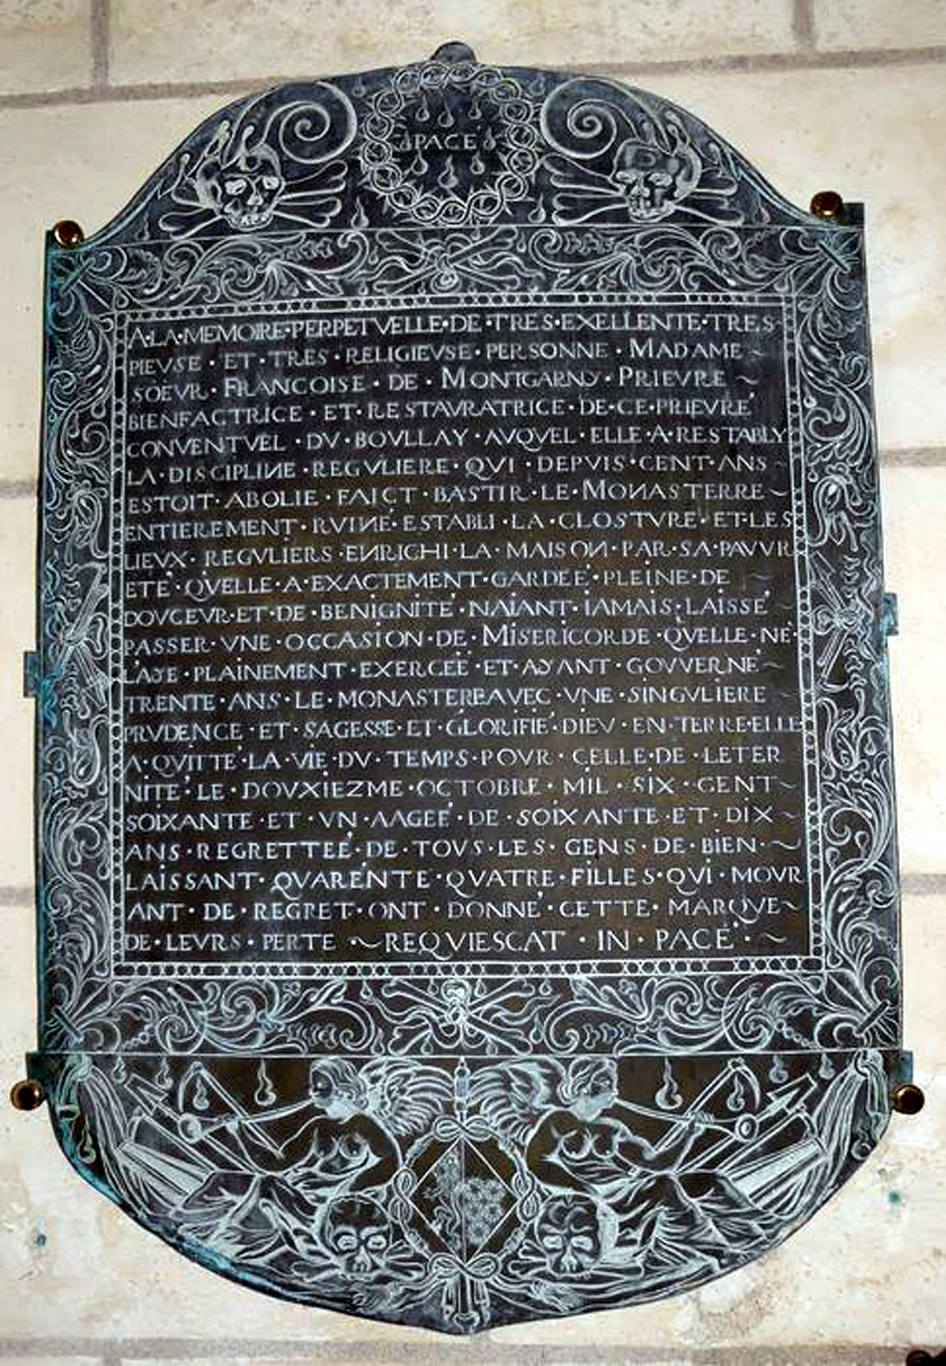 PACE
A·LA·MEMOIRE·PERPETVELLE·DE·TRES·EXELLENTE·TRES~
PIEVSE · ET·TRES·RELIGIEVSE·PERSONNE·MADAME~
SOEVR·FRANCOISE·DE·MONTGARNY·PRIEVRE~
BIENFACTRICE·ET·RESTAVRATRICE·DE·CE·PRIEVRE'
CONVENTVEL·DV·BOVLLAY·AVQVEL·ELLE·A·RESTABLY
LA·DISCIPLINE·REGVLIERE·QVI·DEPVIS·CENT·ANS~
ESTOIT·ABOLIE·FAICT·BASTIR·LE·MONASTERRE~
ENTIEREMENT·RVINE'·ESTABLI·LA·CLOSTVRE·ET·LES
LIEVX·REGVLIERS·ENRICHI·LA·MAISON·PAR·SA·PAVVR
ETE'·QVELLE·A·EXACTEMENT·GARDEE'·PLEINE·DE~
DOVCEVR·ET·DE·BENIGNITE'·NAIANT·IAMAIS·LAISSE'~
PASSER·VNE·OCCASION·DE·MISERICORDE·QVELLE·NE·
LAYE·PLAINEMENT·EXERCEE'·ET·AYANT·GOVVERNE'~
TRENTE·ANS·LE·MONASTERE·AVEC·VNE·SINGVLIERE~
PRVDENCE·ET·SAGESSE·ET·GLORIFIE'·DIEV·EN·TERRE·ELLE
A·QVITTE'·LA·VIE·DV·TEMPS·POVR·CELLE·DE·LETER
NITE'·LE·DOVXIEZME·OCTOBRE·MIL·SIX·CENT~
SOIXANTE·ET·VN·AAGEE'·DE·SOIXANTE·ET·DIX~
ANS·REGRETTEE'·DE·TOVS·LES·GENS·DE·BIEN·~
LAISSANT·QVARENTE·QVATRE·FILLES·QVI·MOVR
ANT·DE·REGRET·ONT·DONNE'·CETTE·MARQVE~
DE·LEVRS·PERTE·~REQVIESCAT·IN·PACE'·~